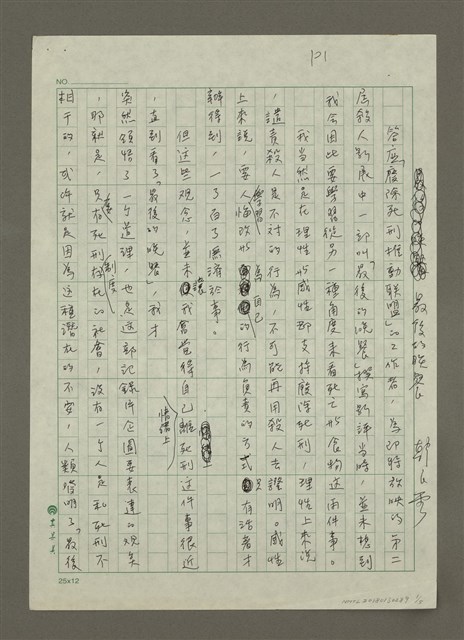 最後的晚餐
答應「廢除死刑推動聯盟」的工作者,為即將放映的第二
屆殺人影展中一部叫「最後的晚餐」撰寫影評當時,並未想到
我會因此要學習從另一種角度來看死亡與食物這兩件事。
我當然是在理性與感性都支持廢除死刑,理性上來說
,譴責殺人是不對的行為,不可能再用殺人去證明。感性
上來說,要人學習悔改與為自己的行為負責的方式,只有活著才
辦得到,一了百了無濟於事。
但這些觀念,並未讓我會覺得自己情緒上離死刑這件事很近
,直到看了「最後的晚餐」,我才
突然領悟了一個道理,也是這部記錄片企圖要表達的觀點
,那就是,只有死刑制度存在的社會,沒有一個人是和死刑不
相干的,或許就是因為這種潛在的不安,人類發明了「最後
NO
25x12